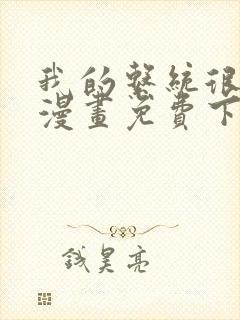 我的系统很
漫画免费下
钱昊亮